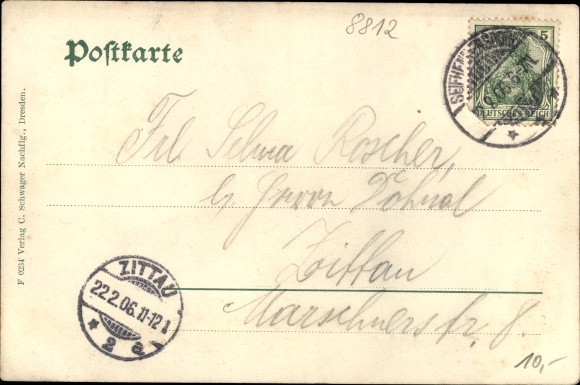 8812
Postkarte
5
DEUTSCHES REICH
Frl. Selma Roscher,
b/ Herrn Dohnal
Zittau
Marschnerstr. 8.
ZITTAU
22.2.06.11-12
* 2 a. *
F 0234 Verlag C. Schwager Nachflg., Dresden.
10,-